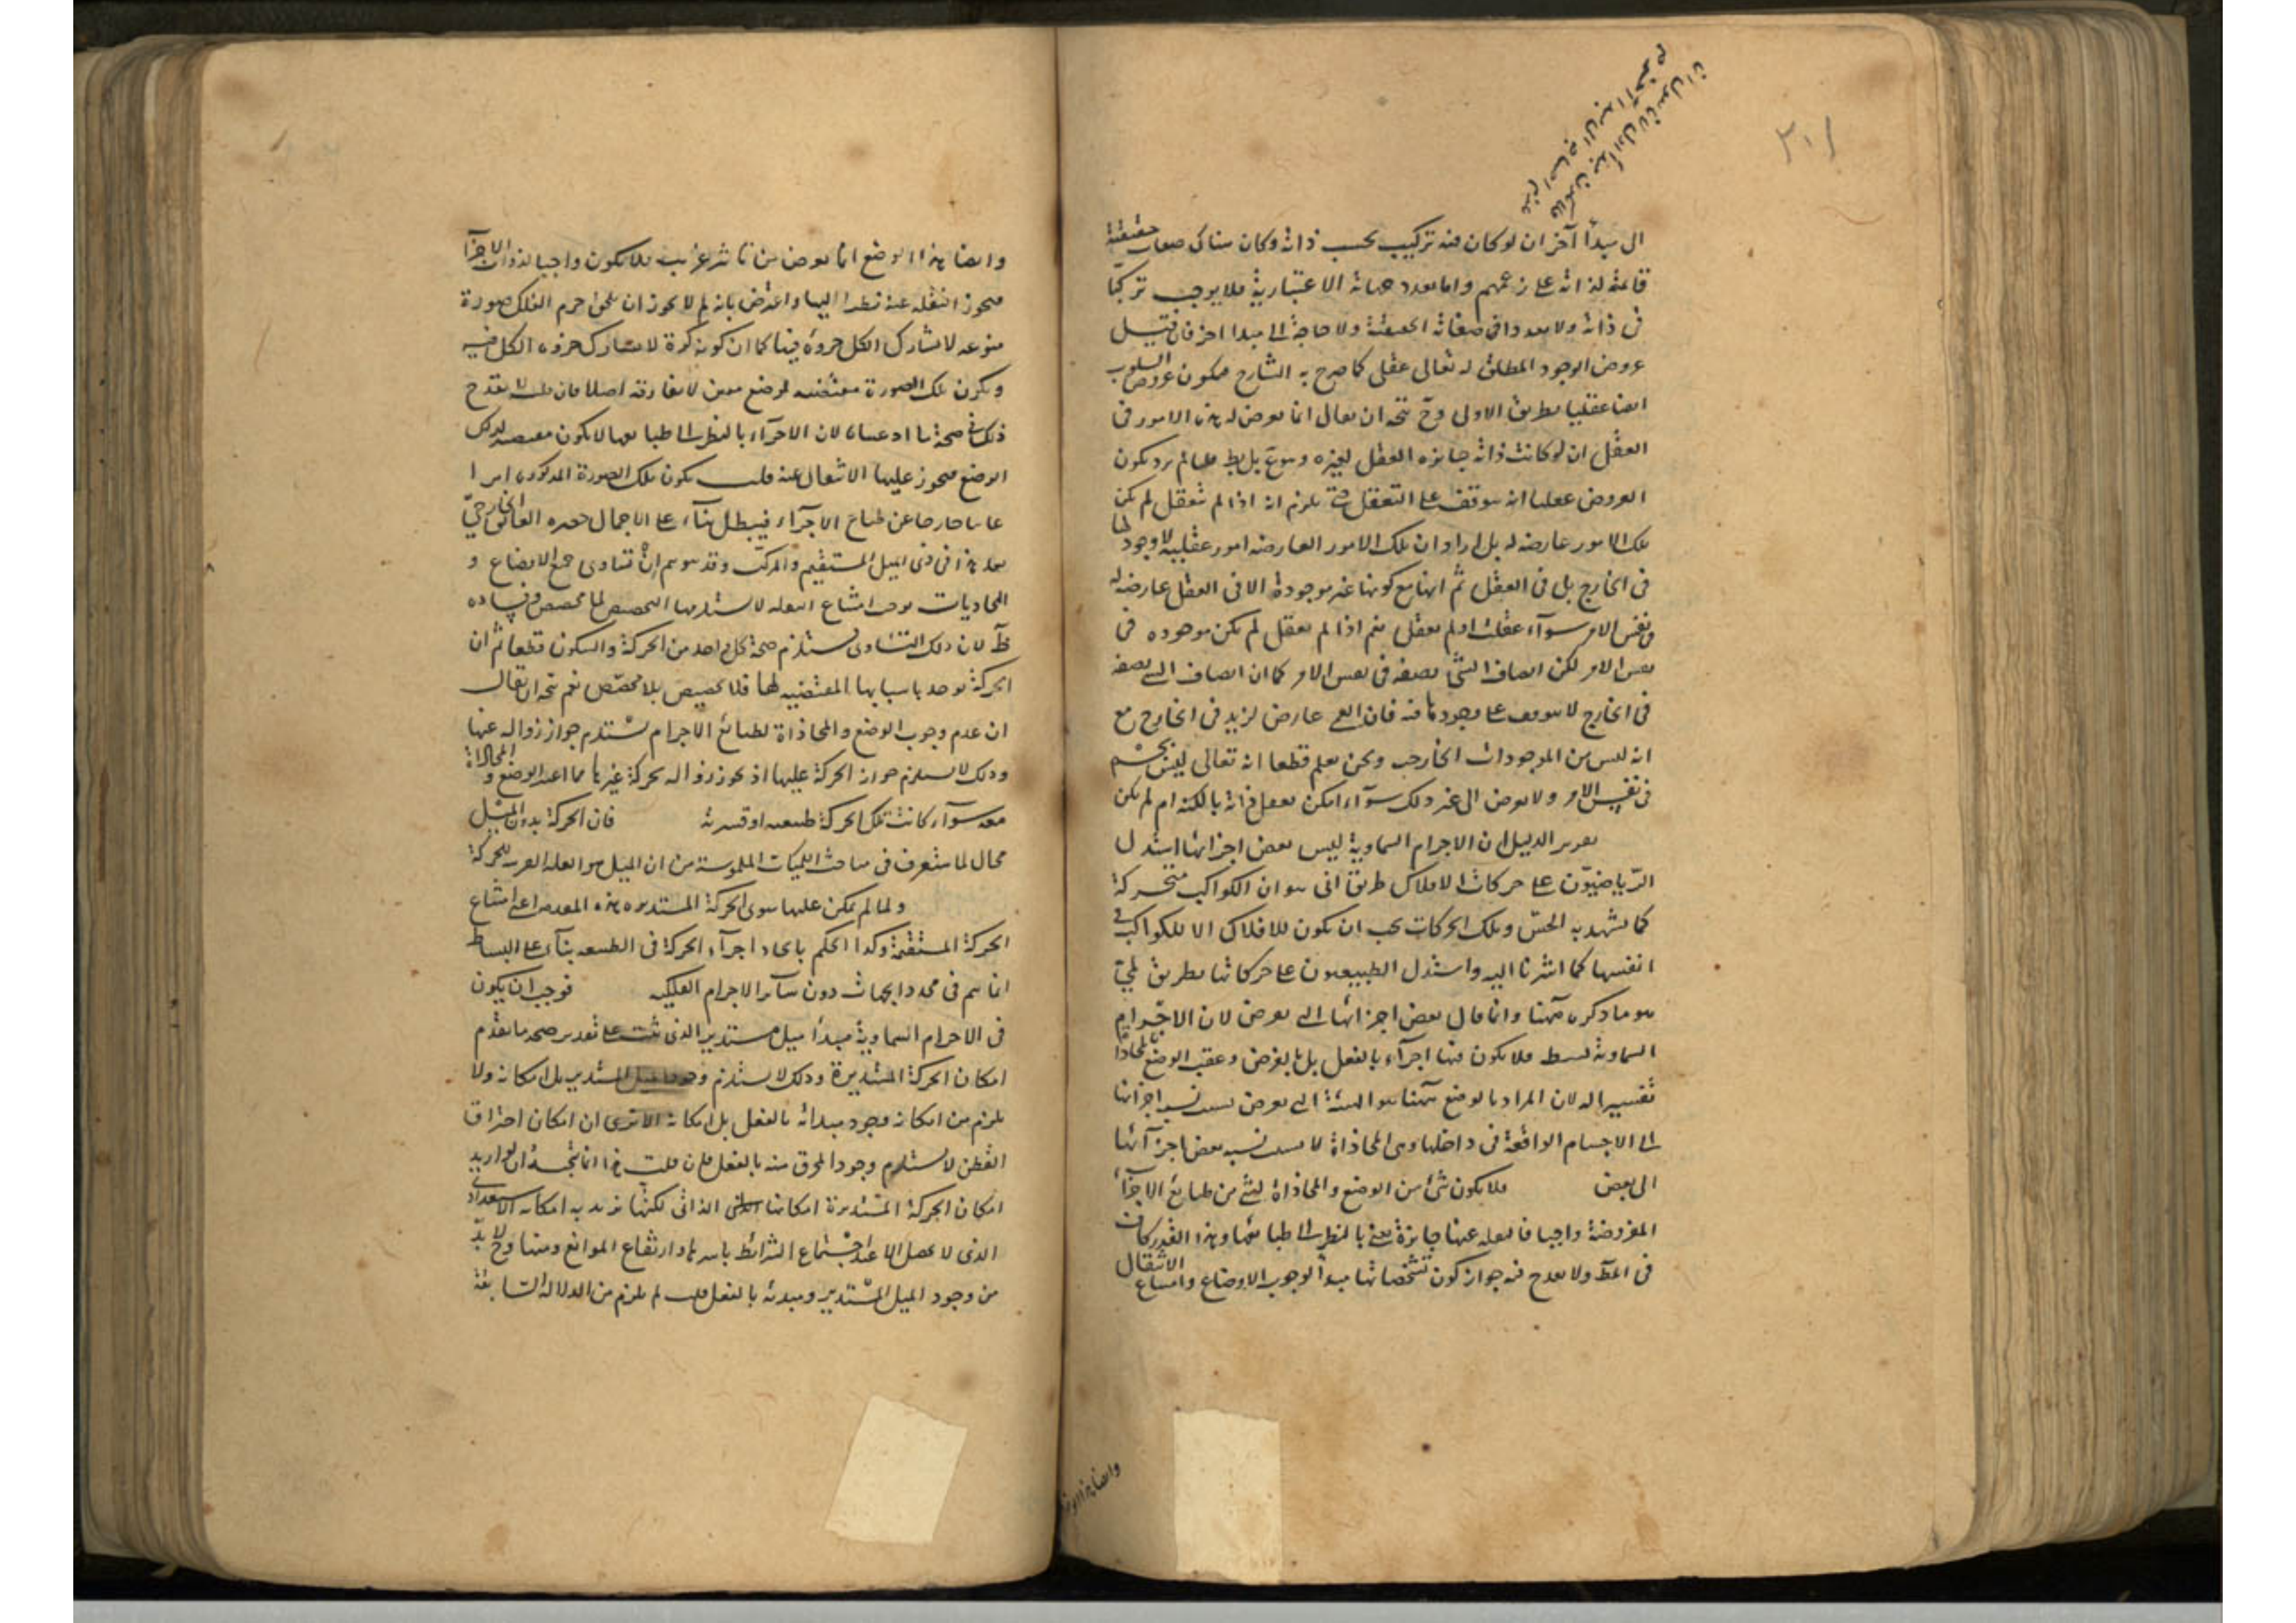 الى مبدأ آخر ان لو كان فيه تركيب بحسب ذاته وكان هناك صفات حقيقية
قائمة لذاته على زعمهم واما تعدد جهاته الاعتبارية فلا يوجب تركبا
فى ذاته ولا تعددا فى صفاته الحقيقية ولا حاجة الى مبدا اخر فان قيل
عروض الوجود المطلق له تعالى عقلى كما صرح به الشارح فيكون عروض السلوب
ايضا عقليا بطريق الاولى وح يتجه ان يقال انما يعرض له هذه الامور فى
العقل ان لو كانت ذاته جائزة التعقل لغيره وهو مم بل يط قلنا لم يرد بكون
العروض عقليا انه يتوقف على التعقل حتى يلزم انه اذا لم يتعقل لم يكن
تلك الامور عارضة له بل اراد ان تلك الامور العارضة امور عقلية لا وجود لها
فى الخارج بل فى العقل ثم انها مع كونها غير موجودة الا فى العقل عارضة له
فى نفس الامر سوآء عقلت او لم تعقل نعم اذا لم تعقل لم تكن موجوده فى
نفس الامر لكن اتصاف الشئ بصفة فى نفس الامر كما ان اتصاف الشئ بصفة
فى الخارج لا يتوقف على وجودها فيه فان العمى عارض لزيد فى الخارج مع
انه ليس من الموجودات الخارجية ونحن نعلم قطعا انه تعالى ليس بجسم
فى نفس الامر ولا بعرض الى غير ذلك سوآء امكن تعقل ذاته بالكنه ام لم يكن
تقرير الدليل ان الاجرام السماوية ليس بعض اجزائها استدل
الرياضيون على حركات الافلاك بطريق انى هو ان الكواكب متحركة
كما يشهد به الحس وتلك الحركات يجب ان يكون للافلاك لا للكواكب فى
انفسها كما اشرنا اليه واستدل الطبيعيون على حركاتها بطريق لمى
هو ما ذكره ههنا وانما قال بعض اجزائها التى تفرض لان الاجرام
السماوية بسيط فلا يكون فيها اجزآء بالفعل بل بالفرض وعقب الوضع بالمحاذاة
تفسيرا له لان المراد بالوضع ههنا هو الهيئة التى تعرض بسبب نسبة اجزائها
الى الاجسام الواقعة فى داخلها وهى المحاذاة لا بسبب نسبة بعض اجزآئها
الى بعض فلا يكون شئ من الوضع والمحاذاة لشئ من طبائع الاجزآء
المفروضة واجبا فالنقلة عنها جائزة يعنى بالنظر الى طباعها وهذا القدر كاف
فى المط ولا يقدح فيه جواز كون تشخصاتها مبدأ لوجوب الاوضاع وامتناع الانتقال
وايضا هذا الو
وايضا هذا الوضع انما يعرض من تاثير غريب فلا يكون واجبا لذوات الاجزآء
فيجوز النقلة عنه نظرا اليها واعترض بانه لم لا يجوز ان يكون لجرم الفلك صورة
نوعية لا يشارك الكل جزوه فيها كما ان كونه كرة لا يشارك جزوه الكل فيه
ويكون تلك الصورة مقتضية لوضع معين لا يفارقه اصلا فان قلت لا يقدح
ذلك فى صحة ما ادعيناه لان الاجزآء بالنظر الى طباعها لا يكون مقتضية لذلك
الوضع فيجوز عليها الانتقال عنه قلت يكون تلك الصورة المذكورة امرا
غائبا خارجا عن طباع الاجزآء فيبطل بنآء على الاجمال حصره العائق الخارجى
بعد هذا فى ذى الميل المستقيم والمركب وقد يتوهم ان تساوى جميع الاوضاع و
المحاذيات يوجب امتناع النقلة لاستلزامها التخصص بلا مخصص وفساده
ظ لان ذلك التساوى يستلزم صحة كل واحد من الحركة والسكون قطعا ثم ان
الحركة توجد باسبابها المقتضية لها فلا تخصيص بلا مخصص نعم يتجه ان يقال
ان عدم وجوب الوضع والمحاذاة لطبائع الاجرام يستلزم جواز زواله عنها
وذلك لا يستلزم جواز الحركة عليها اذ يجوز زواله بحركة غيرها مما اعتبر الوضع والمحاذاة
معه سوآء كانت تلك الحركة طبيعية او قسرية فان الحركة بدون الميل
محال لما ستعرف فى مباحث الكيفيات الملموسة من ان الميل هو العلة القريبة للحركة
ولما لم يمكن عليها سوى الحركة المستديرة هذه المقدمة اعنى امتناع
الحركة المستقيمة وكذا الحكم باتحاد اجزآء الحركة فى الطبيعة بنآء على البساطة
انما تم فى محدد الجهات دون سآئر الاجرام الفلكية فوجب ان يكون
فى الاجرام السماوية مبدأ ميل مستدير الذى ثبت على تقدير صحة ما تقدم
امكان الحركة المستديرة وذلك لا يستلزم وجود الميل المستدير بل امكانه ولا
يلزم من امكانه وجود مبدائه بالفعل بل امكانه الا ترى ان امكان احتراق
القطن لا يستلزم وجود المحرق منه بالفعل فان قلت هذا انما يتجه ان لو اريد
امكان الحركة المستديرة امكانها الذاتى لكنها نريد به امكانه الاستعدادى
الذى لا يحصل الا عند اجتماع الشرائط باسرها وارتفاع الموانع ومنها وح لا بد
من وجود الميل المستدير ومبدئه بالفعل قلت لم يلزم من الدلالة السابقة